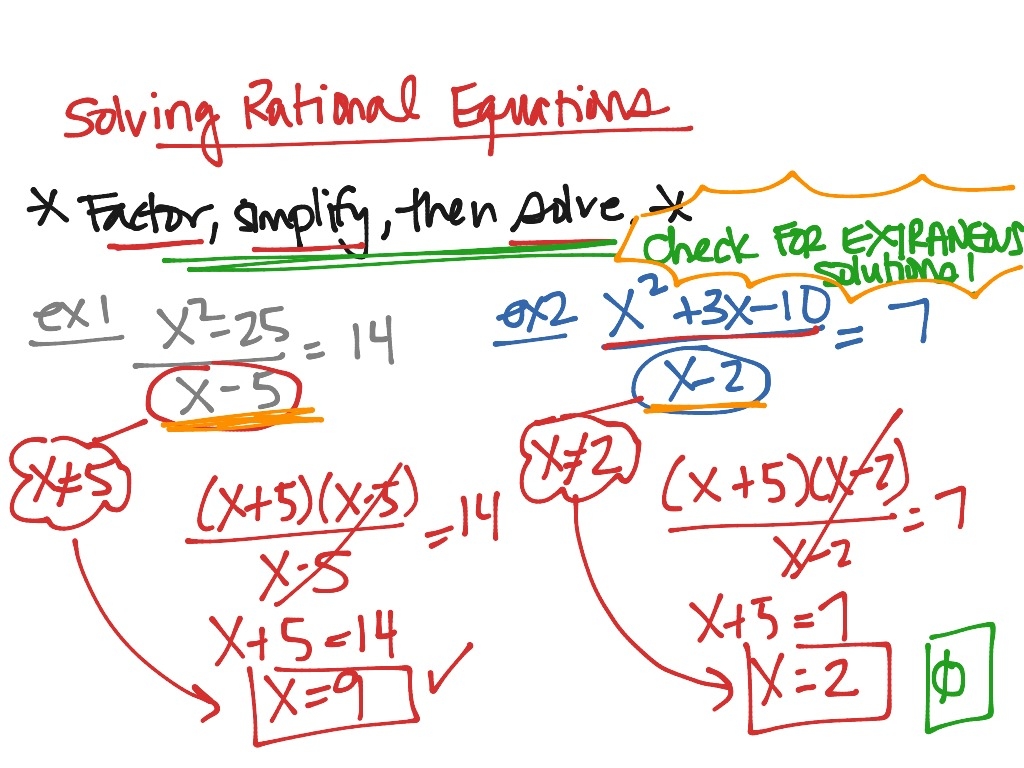 Solving Rational Equations
* Factor, simplify, then solve. *
check FOR EXTRANEOUS
solutions!
ex1
x² - 25
x - 5
= 14
x ≠ 5
(x+5)(x-5)
x-5
= 14
x+5 = 14
x = 9 ✓
ex2
x² + 3x - 10
x - 2
= 7
x ≠ 2
(x+5)(x-2)
x-2
= 7
x+5 = 7
x = 2
∅